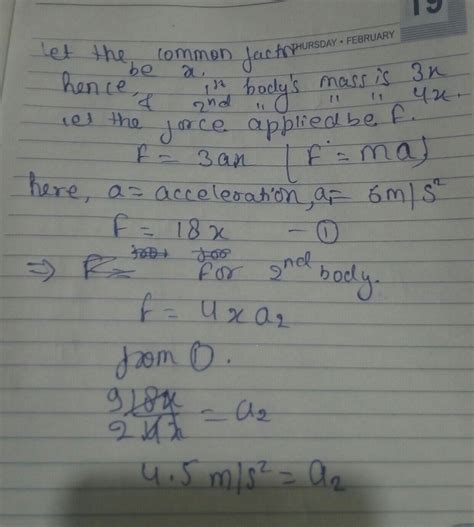 19
THURSDAY • FEBRUARY
Let the common factor
be x.
hence, 1st body's mass is 3x
& 2nd " " " 4x.
Let the force applied be f.
f = 3ax [f = ma]
here, a = acceleration, a₁ = 6m/s²
f = 18x — ①
⇒ for 2nd body.
f = 4x a₂
from ①.
9 18x / 2 4x = a₂
4.5 m/s² = a₂